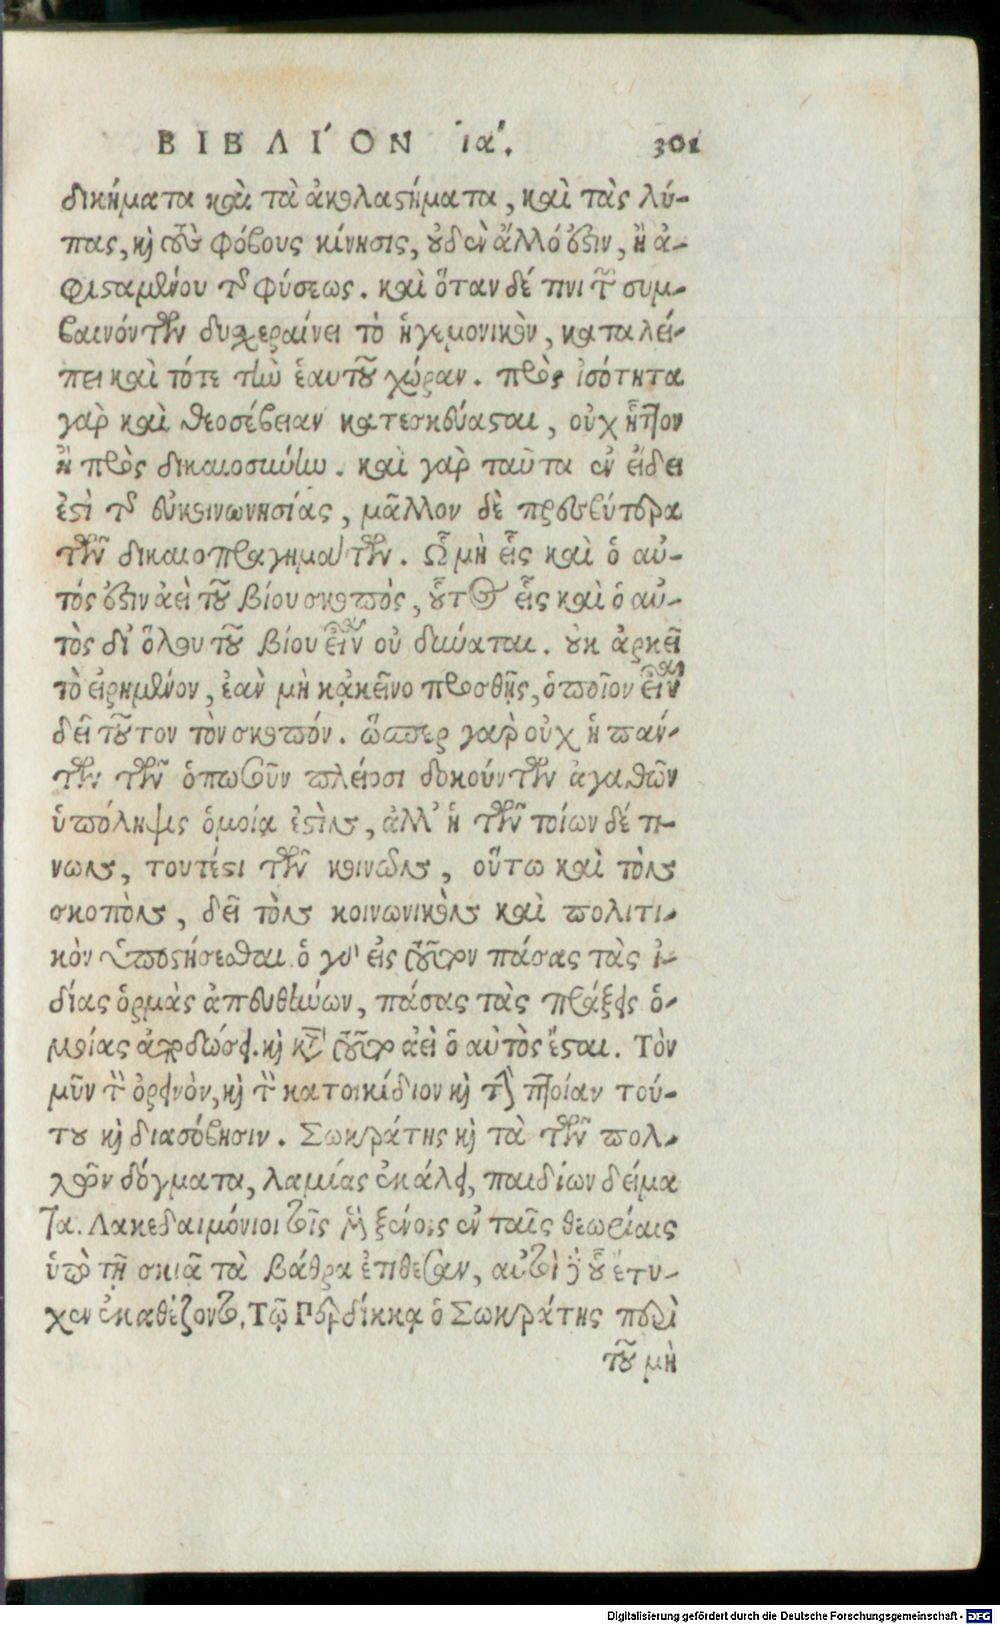 ΒΙΒΛΙ´ΟΝ ια´. 301
δικήματα καὶ τὰ ἀκολαστήματα, καὶ τὰς λύ-
πας, καὶ τοὺς φόβους κίνησις, οὐδὲν ἄλλό ἐστιν, ἢ ἀ-
φισταμένου τῆς φύσεως. καὶ ὅταν δέ τινι τῶν συμ-
βαινόντων δυσχεραίνει τὸ ἡγεμονικὸν, καταλεί-
πει καὶ τότε τὴν ἑαυτοῦ χώραν. πρὸς ἰσότητα
γὰρ καὶ θεοσέβειαν κατεσκεύασται, οὐχ ἧττον
ἢ πρὸς δικαιοσύνην. καὶ γὰρ ταῦτα ἐν εἴδει
ἐστὶ τῆς εὐκοινωνησίας, μᾶλλον δὲ πρεσβύτερα
τῶν δικαιοπραγημάτων. Ὧ μὴ εἷς καὶ ὁ αὐ-
τός ἐστιν ἀεὶ τοῦ βίου σκοπὸς, οὗτος εἷς καὶ ὁ αὐ-
τὸς δι' ὅλου τοῦ βίου εἶναι οὐ δύναται. οὐκ ἀρκεῖ
τὸ εἰρημένον, ἐὰν μὴ κἀκεῖνο προσθῇς, ὁποῖον εἶναι
δεῖ τοῦτον τὸν σκοπόν. ὥσπερ γὰρ οὐχ ἡ πάν-
των τῶν ὁπωσοῦν πλείοσι δοκούντων ἀγαθῶν
ὑπόληψις ὁμοία ἐστὶν, ἀλλ' ἡ τῶν τοίων δέ τι-
νων, τουτέστι τῶν κοινῶν, οὕτω καὶ τὸν
σκοπὸν, δεῖ τὸν κοινωνικὸν καὶ πολιτι-
κὸν ὑποστήσεσθαι. ὁ γὰρ εἰς τοῦτον πάσας τὰς ἰ-
δίας ὁρμὰς ἀπευθύνων, πάσας τὰς πράξεις ὁ-
μοίας ἀποδώσει. καὶ κατὰ τοῦτον ἀεὶ ὁ αὐτὸς ἔσται. Τὸν
μῦν τὸν ὀρεινὸν, καὶ τὸν κατοικίδιον καὶ τὴν πτοίαν τού-
του καὶ διασόβησιν. Σωκράτης καὶ τὰ τῶν πολ-
λῶν δόγματα, λαμίας ἐκάλει, παιδίων δείμα
τα. Λακεδαιμόνιοι τοῖς μὲν ξένοις ἐν ταῖς θεωρίαις
ὑπὸ τῇ σκιᾷ τὰ βάθρα ἐτίθεσαν, αὐτοὶ δὲ οὗ ἔτυ-
χεν ἐκαθέζοντο. Τῷ Περδίκκᾳ ὁ Σωκράτης περὶ
τοῦ μὴ
Digitalisierung gefördert durch die Deutsche Forschungsgemeinschaft - DFG